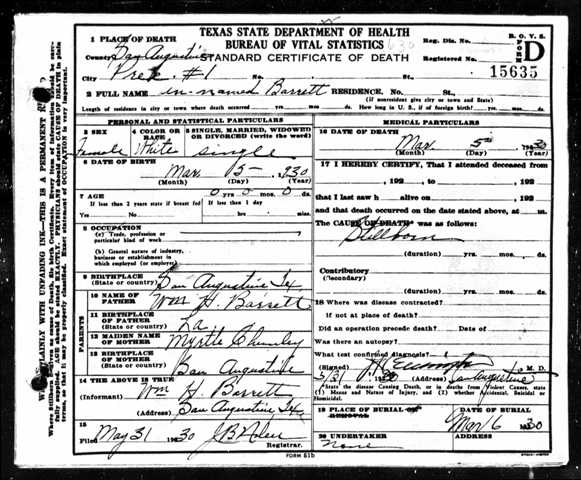 TEXAS STATE DEPARTMENT OF HEALTH
BUREAU OF VITAL STATISTICS
STANDARD CERTIFICATE OF DEATH
Reg. Dis. No.
Registered No.
B. O. V. S.
FORM D
15635
1 PLACE OF DEATH
County San Augustine
City Prct. #1 No.
2 FULL NAME un-named Barrett RESIDENCE. No.
(if nonresident give city or town and State)
Length of residence in city or town where death occurred yrs. mos. ds. How long in U. S., if of foreign birth? yrs. mos. ds.
PERSONAL AND STATISTICAL PARTICULARS
3 SEX
Female
4 COLOR OR RACE
White
5 SINGLE, MARRIED, WIDOWED OR DIVORCED (write the word)
single
6 DATE OF BIRTH
Mar 5 1930
(Month) (Day) (Year)
7 AGE 0 yrs 0 mos. 0 ds.
If less than 2 years state if breast fed If less than 1 day
Yes No hrs. min.
8 OCCUPATION
(a) Trade, profession or particular kind of work
(b) General nature of industry, business or establishment in which employed (or employer)
9 BIRTHPLACE
(State or country) San Augustine Tex
PARENTS
10 NAME OF FATHER Wm H. Barrett
11 BIRTHPLACE OF FATHER
(State or country) La
12 MAIDEN NAME OF MOTHER Myrtle Chumley
13 BIRTHPLACE OF MOTHER
(State or country) San Augustine
14 THE ABOVE IS TRUE
(Informant) Wm H. Barrett
(Address) San Augustine Tex
15
Filed May 31 1930 J B Nolen
Registrar.
MEDICAL PARTICULARS
16 DATE OF DEATH
Mar 5 1930
(Month) (Day) (Year)
17 I HEREBY CERTIFY, That I attended deceased from
, 192 , to , 192
that I last saw h alive on , 192
and that death occurred on the date stated above, at m.
The CAUSE OF DEATH* was as follows:
Stillborn
(duration) yrs. mos. ds.
Contributory
(Secondary)
(duration) yrs. mos. ds.
18 Where was disease contracted?
if not at place of death?
Did an operation precede death? Date of
Was there an autopsy?
What test confirmed diagnosis?
(Signed) M. D.
5/31 1930 (Address) San Augustine
*State the Disease Causing Death, or in deaths from Violent Causes, state (1) Means and Nature of Injury, and (2) whether Accidental, Suicidal or Homicidal.
19 PLACE OF BURIAL OR REMOVAL
DATE OF BURIAL
Mar 6 1930
20 UNDERTAKER
None
ADDRESS
FORM 61b